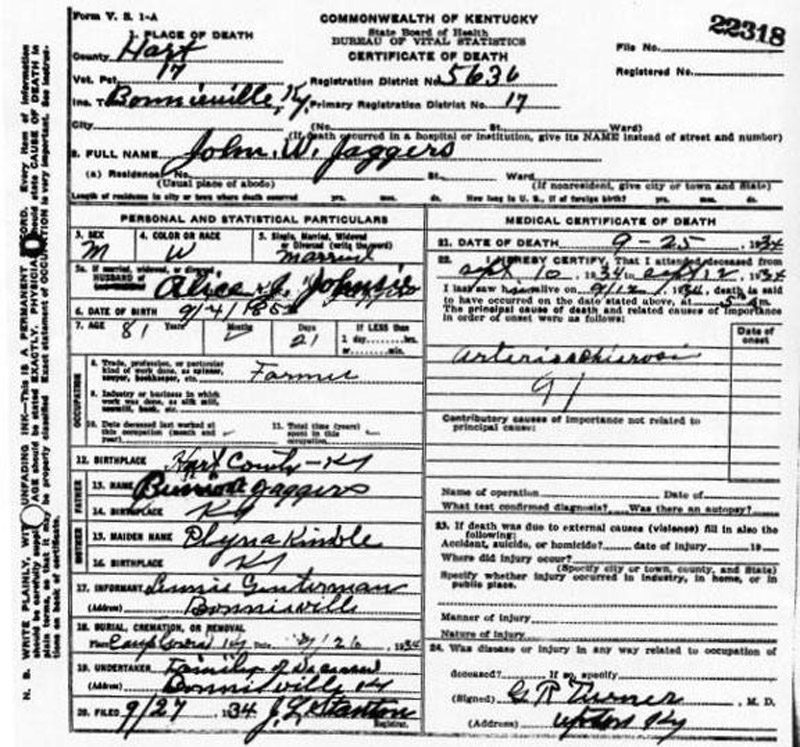 Form V. S. 1-A
COMMONWEALTH OF KENTUCKY
State Board of Health
BUREAU OF VITAL STATISTICS
CERTIFICATE OF DEATH
22318
File No.
Registered No.
1. PLACE OF DEATH
County Hart
Vot. Pct. 17
Registration District No. 5636
Inc. T Bonnieville, Ky. Primary Registration District No. 17
City (No. St. Ward)
(If death occurred in a hospital or institution, give its NAME instead of street and number)
2. FULL NAME John. W. Jaggers
(a) Residence No. St. Ward
(Usual place of abode) (If nonresident, give city or town and State)
Length of residence in city or town where death occurred yrs. mos. ds. How long in U. S., if of foreign birth? yrs. mos. ds.
PERSONAL AND STATISTICAL PARTICULARS
3. SEX M
4. COLOR OR RACE W
5. Single, Married, Widowed or Divorced (write the word) Married
5a. If married, widowed, or divorced
HUSBAND of Alice J.
6. DATE OF BIRTH 9/4/185
7. AGE 81 Years Months Days 21
If LESS than 1 day hrs. or min.
OCCUPATION
8. Trade, profession, or particular kind of work done, as spinner, sawyer, bookkeeper, etc. Farmer
9. Industry or business in which work was done, as silk mill, sawmill, bank, etc.
10. Date deceased last worked at this occupation (month and year)
11. Total time (years) spent in this occupation
12. BIRTHPLACE Hart County - Ky
FATHER
13. NAME Jaggers
14. BIRTHPLACE Ky
MOTHER
15. MAIDEN NAME Kimble
16. BIRTHPLACE Ky
17. INFORMANT Lennis
(Address) Bonnieville
18. BURIAL, CREMATION, OR REMOVAL
Place Ky Date 9/26, 1934
19. UNDERTAKER Family of Deceased
(Address) Bonnieville Ky
20. FILED 9/27 1934 J. L. Stanton
Registrar.
MEDICAL CERTIFICATE OF DEATH
21. DATE OF DEATH 9-25, 1934
22. I HEREBY CERTIFY, That I attended deceased from
Sept 10, 1934 to Sept 12, 1934
I last saw him alive on 9/12/, 1934, death is said
to have occurred on the date stated above, at 5 a m.
The principal cause of death and related causes of importance in order of onset were as follows:
Date of onset
97
Contributory causes of importance not related to principal cause:
Name of operation Date of
What test confirmed diagnosis? Was there an autopsy?
23. If death was due to external causes (violence) fill in also the following:
Accident, suicide, or homicide? date of injury 19
Where did injury occur?
(Specify city or town, county, and State)
Specify whether injury occurred in industry, in home, or in public place.
Manner of injury
Nature of injury
24. Was disease or injury in any way related to occupation of
deceased? If so, specify
(Signed) G R Turner, M. D.
(Address) Upton Ky